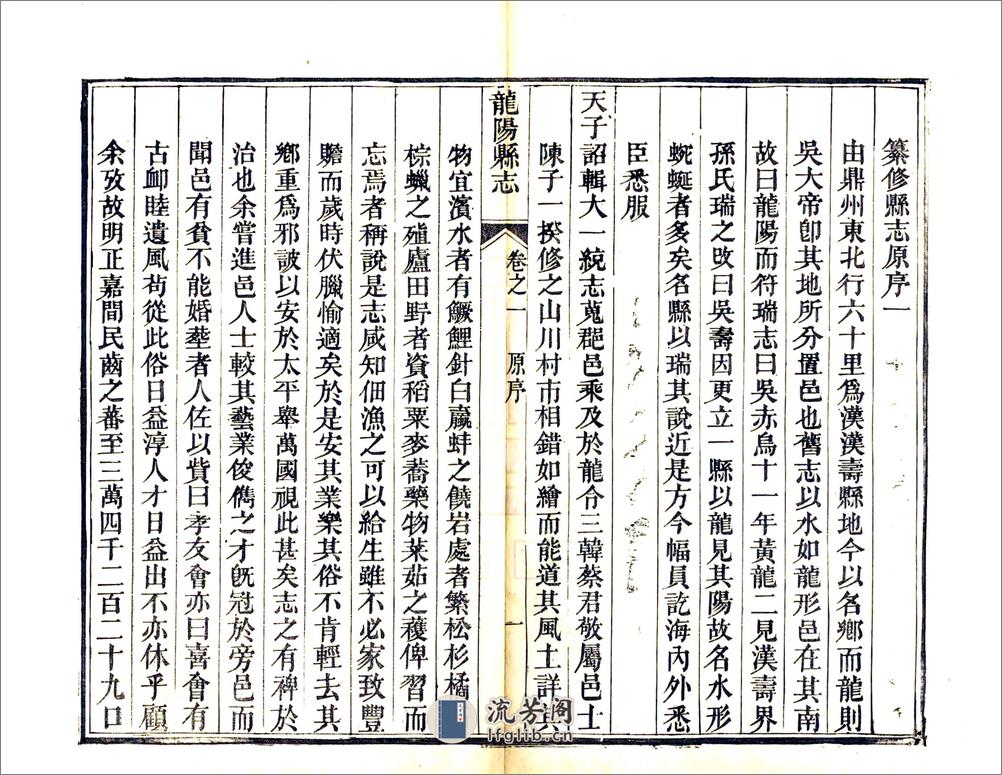 纂修縣志原序一
由鼎州東北行六十里爲漢漢壽縣地今以名鄉而龍則
吳大帝卽其地所分置邑也舊志以水如龍形邑在其南
故曰龍陽而符瑞志曰吳赤烏十一年黃龍二見漢壽界
孫氏瑞之改曰吳壽因更立一縣以龍見其陽故名水形
蜿蜒者多矣名縣以瑞其說近是方今幅員訖海內外悉
臣悉服
天子詔輯大一統志蒐郡邑乘及於龍令三韓蔡君敬屬邑士
陳子一揆修之山川村市相錯如繪而能道其風土詳其
龍陽縣志 卷之一 原序 一
物宜濱水者有鱖鯉針白蠃蚌之饒岩處者繁松杉橘
棕蠟之殖廬田野者資稻粟麥蕎藥物菜茹之穫俾習而
忘焉者稱說是志咸知佃漁之可以給生雖不必家致豐
贍而歲時伏臘愉適矣於是安其業樂其俗不肯輕去其
鄉重爲邪詖以安於太平舉萬國視此甚矣志之有裨於
治也余嘗進邑人士較其藝業俊儁之才旣冠於旁邑而
聞邑有貧不能婚葬者人佐以貲曰孝友會亦曰喜會有
古卹睦遺風苟從此俗日益淳人才日益出不亦休乎顧
余攷故明正嘉間民齒之蕃至三萬四千二百二十九口
流芳阁
lfglib.cn